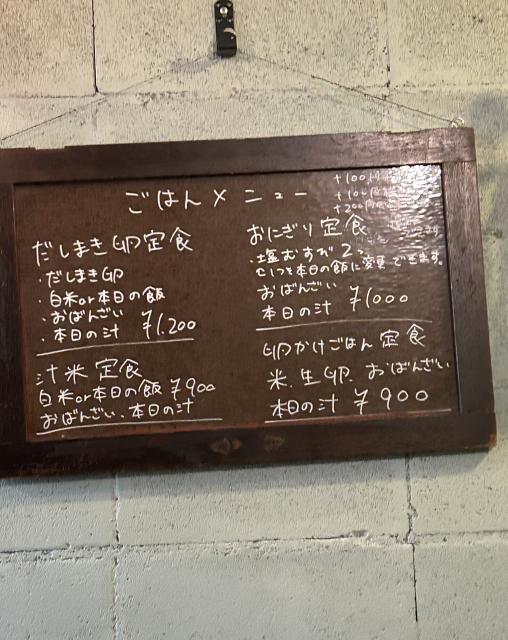 ごはんメニュー
+100円
+100円
+200円
だしまき卵定食
・だしまき卵
・白米or本日の飯
・おばんざい
・本日の汁 ¥1.200
汁米定食
白米or本日の飯 ¥900
おばんざい、本日の汁
おにぎり定食
・塩むすび2つ
1つを本日の飯に変更できます。
おばんざい
本日の汁 ¥1000
卵かけごはん定食
米、生卵、おばんざい
本日の汁 ¥900